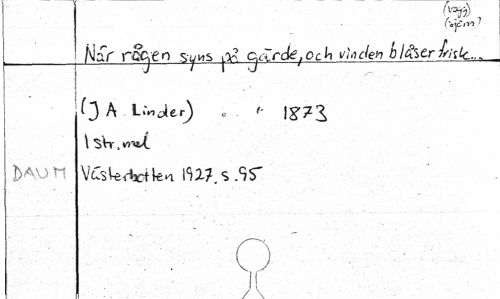 (vagg)
När rågen syns på gärde, och vinden blåser frisk...
(J A. Linder) . " 1873
1 str. mel
DAUM Västerbotten 1927. s. 95